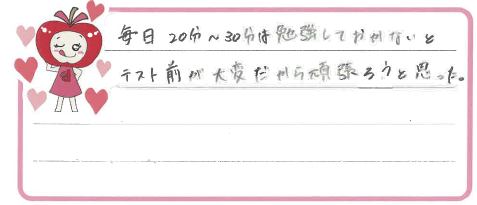 毎日20分~30分は勉強しておかないと
テスト前が大変だから頑張ろうと思った。